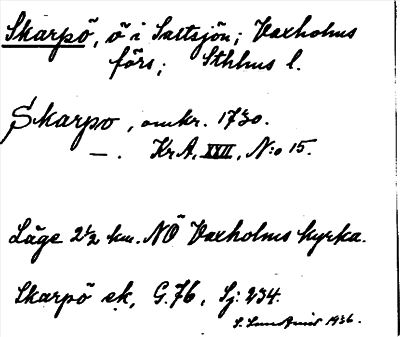 Skarpö, ö i Saltsjön; Vaxholms
förs; Sthlms l.
Skarpo, omkr. 1730.
—. KrA, XXII, N:o 15.
Läge 2 1/2 km. NÖ Vaxholms kyrka.
Skarpö ek, G.76, Sj: 234.
1936.